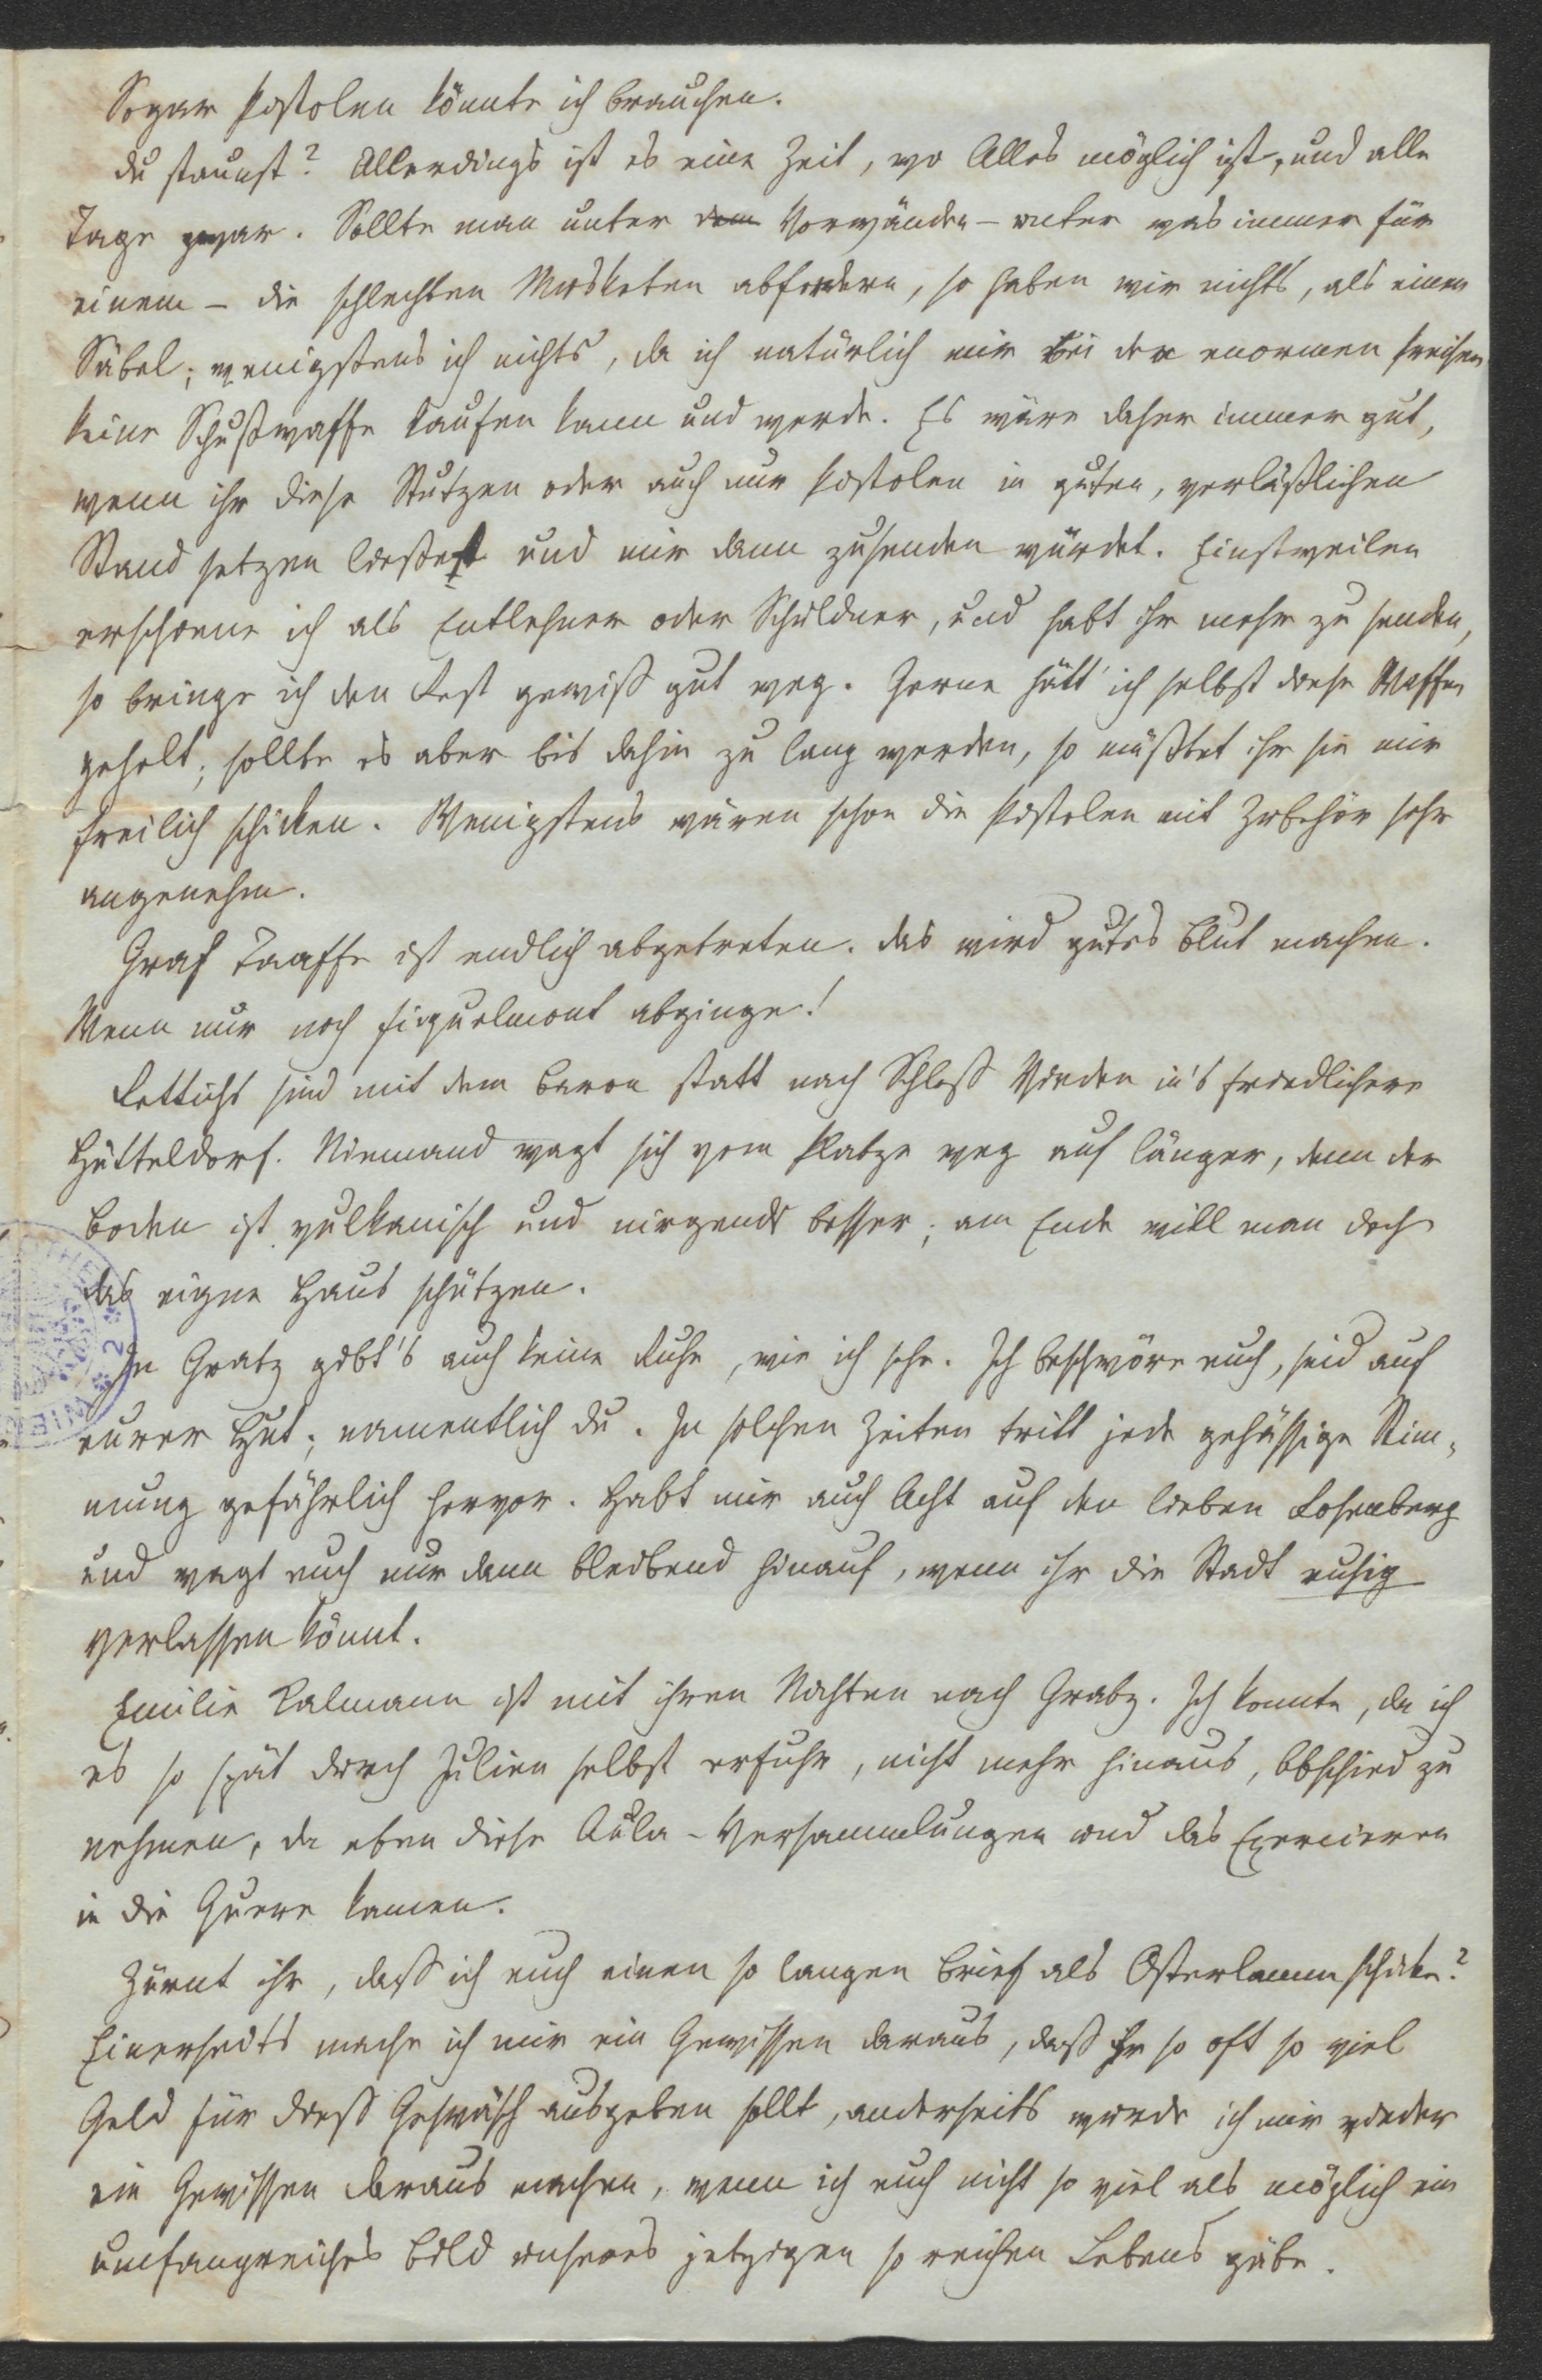 Sogar Pistolen könnte ich brauchen.
Du staunst? Allerdings ist es eine Zeit, wo Alles möglich ist, und alle
Tage zwar. Sollte man unter dem Vorwänden – unter was immer für
einem – die schlechten Musketen abfordern, so haben wir nichts, als einen
Säbel; wenigstens ich nichts, da ich natürlich mir bei den enormen Preisen
keine Schußwaffe kaufen kann und werde. Es wäre daher immer gut,
wenn ihr diese Stutzen oder auch nur Pistolen in guten, verläßlichen
Stand setzen ließet und mir dann zusenden würdet. Einstweilen
erscheine ich als Entlehner oder Schuldner, und habt ihr mehr zu senden,
so bringe ich den Rest gewiß gut weg. Gerne hätt' ich selbst diese Waffen
geholt; sollte es aber bis dahin zu lang werden, so müßtet ihr sie mir
freilich schicken. Wenigstens wären schon die Pistolen mit Zubehör sehr
angenehm.
Graf Taaffe ist endlich abgetreten. Das wird gutes Blut machen.
Wenn nur noch Fiquelmont abginge!
Rettichs sind mit dem Baron statt nach Schloß Vieden in's friedlichere
Hütteldorf. Niemand wagt sich vom Platze weg auf länger, denn der
Boden ist vulkanisch und nirgends besser; am Ende will man doch
das eigne Haus schützen.
In Gratz gibt's auch keine Ruhe, wie ich sehe. Ich beschwöre euch, seid auf
eurer Hut; namentlich du. In solchen Zeiten tritt jede gehässige Stim=
mung gefährlich hervor. Habt mir auch Acht auf den lieben Rosenberg
und wagt euch nur dann bleibend hinauf, wenn ihr die Stadt ruhig
verlassen könnt.
Emilie Kalmann ist mit ihren Nichten nach Gratz. Ich konnte, da ich
es so spät durch Julien selbst erfuhr, nicht mehr hinaus, Abschied zu
nehmen, da eben diese Aula-Versammlungen und das Exercieren
in die Quere kamen.
Zürnt ihr, daß ich euch einen so langen Brief als Osterlamm schicke?
Einerseits mache ich mir ein Gewissen daraus, daß Ihr so oft so viel
Geld für dieß Geschwäsch ausgeben sollt, anderseits würde ich mir wieder
ein Gewissen daraus machen, wenn ich euch nicht so viel als möglich ein
umfangreiches Bild unseres jetzigen so reichen Lebens gäbe.